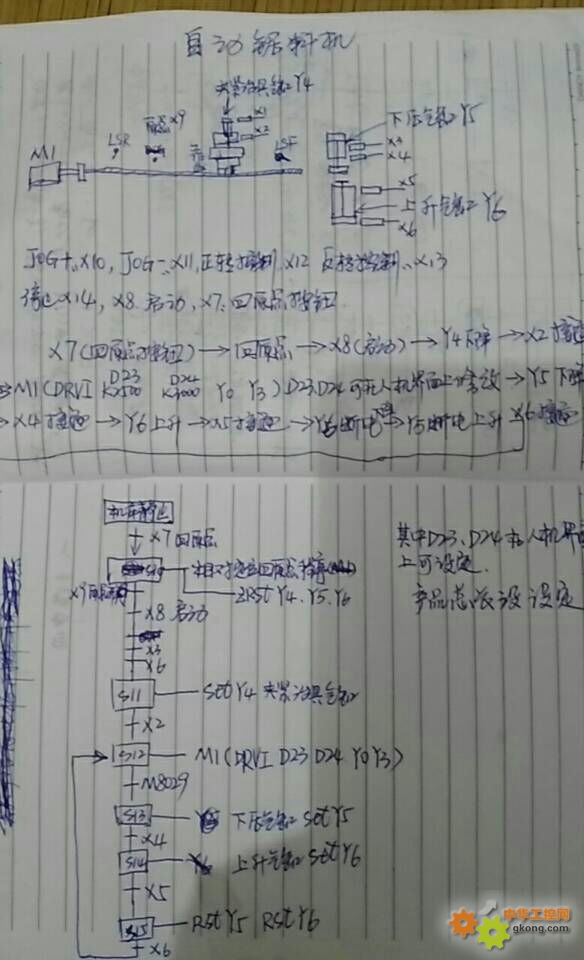 自动锯料机
夹紧冶具气缸Y4
X1
X2
原点X9
LSR
LSF
M1
下压气缸Y5
X3
X4
X5
上升气缸Y6
X6
JOG+、X10, JOG-、X11, 正转控制、X12 反转控制、X13
停止X14, X8、启动, X7、回原点按钮
X7(回原点按钮)→回原点→X8(启动)→Y4下降→X2接通
D23 D24
→M1(DRVI K2500 K3000 Y0 Y3) D23,D24可在人机界面上修改→Y5下降
→X4接通→Y6上升→X5接通→Y6断电下降→Y5断电上升 X6接通
X7回原点
S10
ZRST Y4、Y5、Y6
X9
X8启动
X3
X6
S11 Set Y4 夹紧冶具气缸
X2
S12 M1(DRVI D23 D24 Y0 Y3)
M8029
S13 下压气缸 Set Y5
X4
S14 上升气缸 Set Y6
X5
S15 Rst Y5 Rst Y6
X6
其中D23、D24在人机界面
上可设定.
产品总
设定
中华工控网
gkong.com